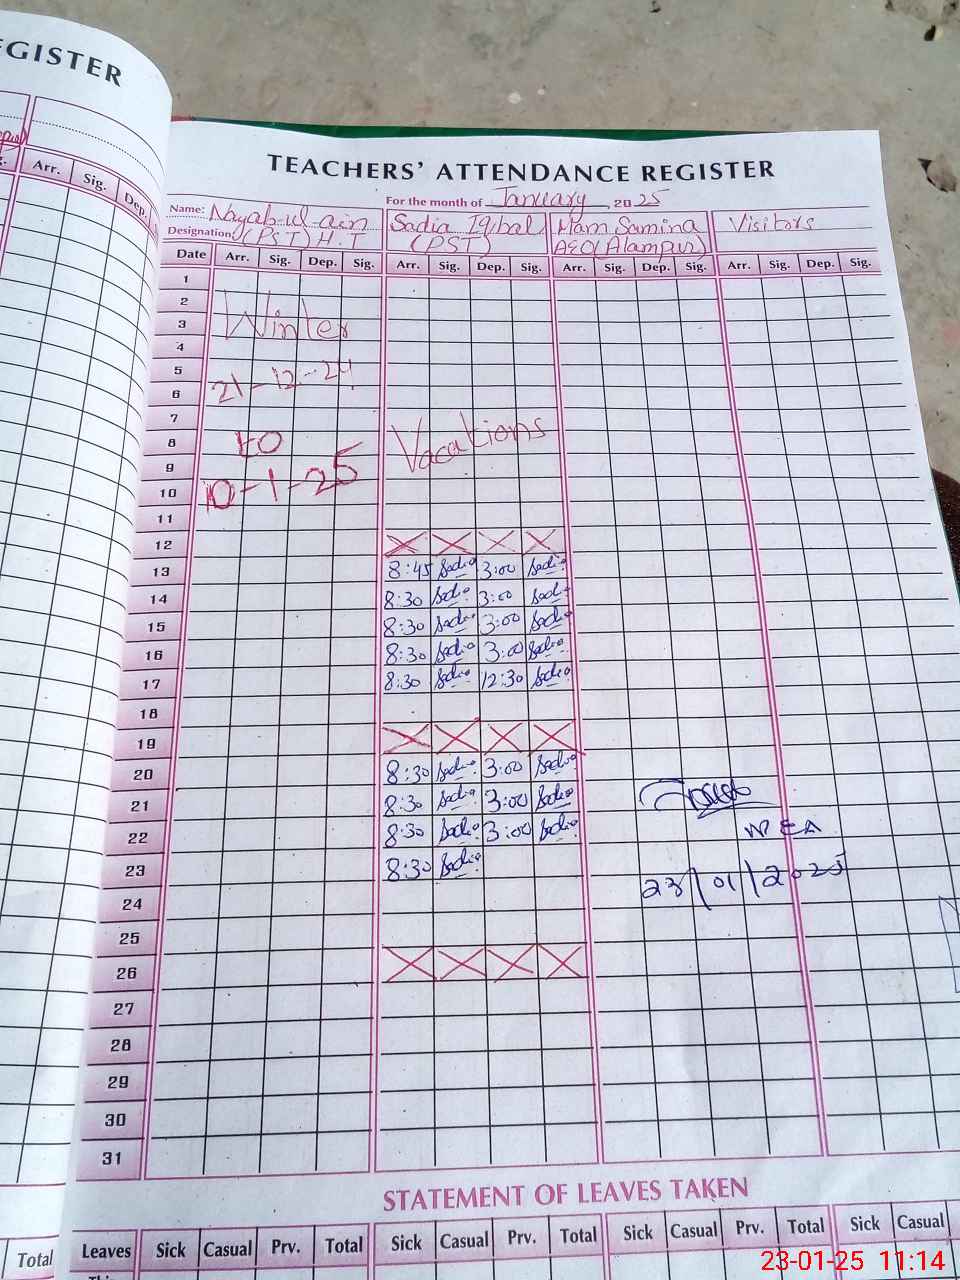 EGISTER
Arr. Sig. Dep.
Total
TEACHERS' ATTENDANCE REGISTER
For the month of January, 2025
Name: Nayab-ul-ain Sadia Iqbal Mam Samina Visitors
Designation (PST) H.T (PST) AEO (Alampur)
Date Arr. Sig. Dep. Sig. Arr. Sig. Dep. Sig. Arr. Sig. Dep. Sig. Arr. Sig. Dep. Sig.
1
2
3 Winter
4
5
6 21-12-24
7
8 to Vacations
9
10 10-1-25
11
12
13 8:45 Sadia 3:00 Sadia
14 8:30 Sadia 3:00 Sadia
15 8:30 Sadia 3:00 Sadia
16 8:30 Sadia 3:00 Sadia
17 8:30 Sadia 12:30 Sadia
18
19
20 8:30 Sadia 3:00 Sadia
21 8:30 Sadia 3:00 Sadia
22 8:30 Sadia 3:00 Sadia MEA
23 8:30 Sadia 23/01/2025
24
25
26
27
28
29
30
31
STATEMENT OF LEAVES TAKEN
Leaves Sick Casual Prv. Total Sick Casual Prv. Total Sick Casual Prv. Total Sick Casual
23-01-25 11:14